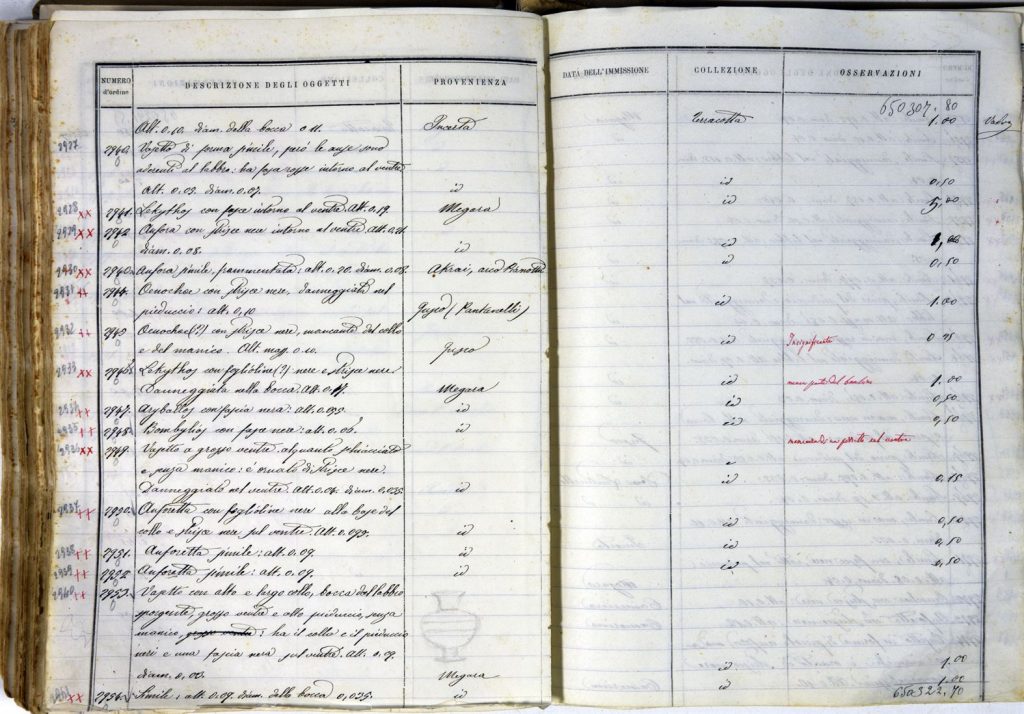 NUMERO d'ordine
DESCRIZIONE DEGLI OGGETTI
PROVENIENZA
DATA DELL'IMMISSIONE
COLLEZIONE
OSSERVAZIONI
650307.80
Alt. 0.10. diam. della bocca 0.11. Incerta Terracotta 1.00
2937 2940 Vasetto di forma simile, però le anse sono
aderenti al labbro: ha fasce rosse intorno al ventre
Alt. 0.09. diam. 0.07. id id 0,50
2938 xx 2941 Lekythos con fasce intorno al ventre. Alt. 0.19. Megara id 5,00
2939 xx 2942 Anfora con strisce nere intorno al ventre. Alt.
diam. 0.08. id id 1,00
2930 xx Anfora simile, frammentata: alt. 0.20. diam. 0.08. Akrai, id 0,50
2931 2944 Oenochoe con strisce nere, danneggiata nel
pieduccio: alt. 0.10 Gusco (Pantanelli) id 1.00
2932 2945 Oenochoe (?) con strisce nere, mancante del collo
e del manico. Alt. mag. 0.10. Gusco id Insignificante 0 75
2933 xx 2946 Lekythos con foglioline (?) nere e strisce nere.
Danneggiata nella bocca. Alt. 0.17. Megara id 1.00
2947 Aryballos con fascia nera: alt. id id 0,50
2935 2948 Bombylios con fasce nere: alt. 0.06. id id 0,50
2936 xx 2949 Vasetto a grosso ventre alquanto schiacciato
e senza manico: è ornato di strisce nere.
Danneggiato nel ventre. Alt. 0.04. diam. 0,035. id id 0,15
2937 2950 Anforetta con foglioline nere alla base del
collo e strisce nere sul ventre. Alt. 0.095. id id 0,50
2938 2951. Anforetta simile: alt. 0.09. id id 0,50
2939 2952 Anforetta simile: alt. 0.09. id id 0,50
2940 2953 Vasetto con alto e largo collo, bocca dal labbro
sporgente, grosso ventre e alto pieduccio, senza
manico, grosso ventre: ha il collo e il pieduccio
neri e una fascia nera sul ventre. Alt. 0.09.
diam. 0,00. Megara id 1.00
xx 2954 Simile: alt. 0.09. diam. della bocca 0,025. id id 1.00
650322.70